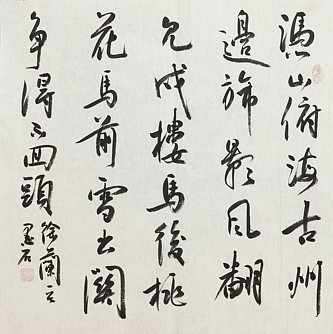 憑山俯海古州
邊旆影風翻
見戍樓馬後桃
花馬前雪出關
争得不回頭
徐蘭
墨石